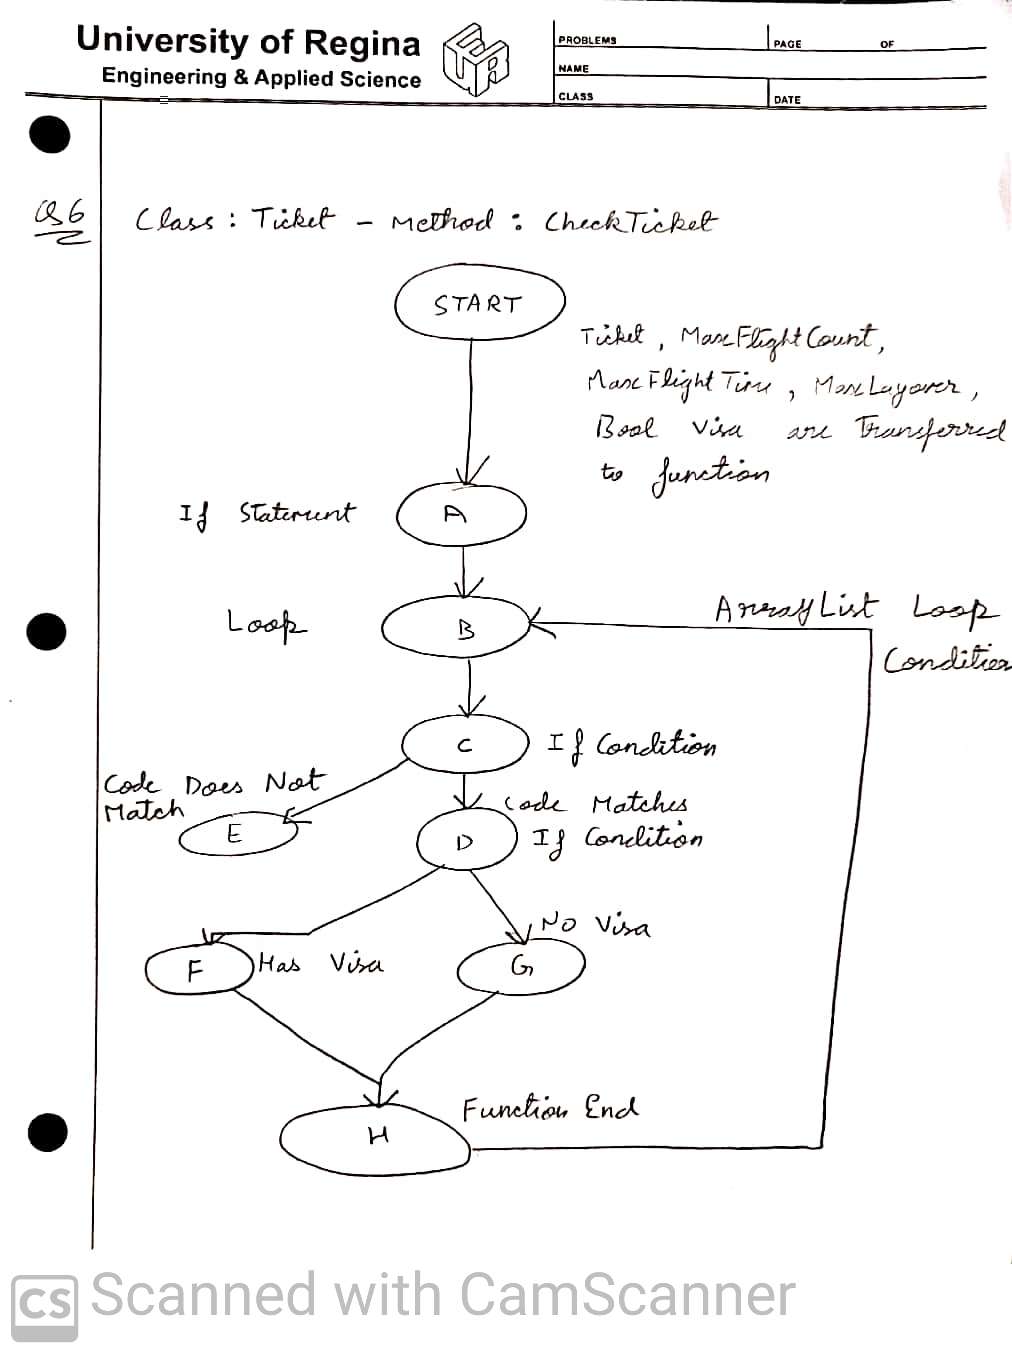 University of Regina
Engineering & Applied Science
PROBLEMS
PAGE OF
NAME
CLASS
DATE
Q6
Class : Ticket - Method : CheckTicket
START
Ticket, MaxFlightCount,
MaxFlightTime, MaxLayover,
Bool Visa are Transferred
to function
If Statement
A
Loop
B
ArrayList Loop
Condition
C
If Condition
Code Does Not
Match
E
Code Matches
D
If Condition
No Visa
F
Has Visa
G
Function End
H
CS Scanned with CamScanner